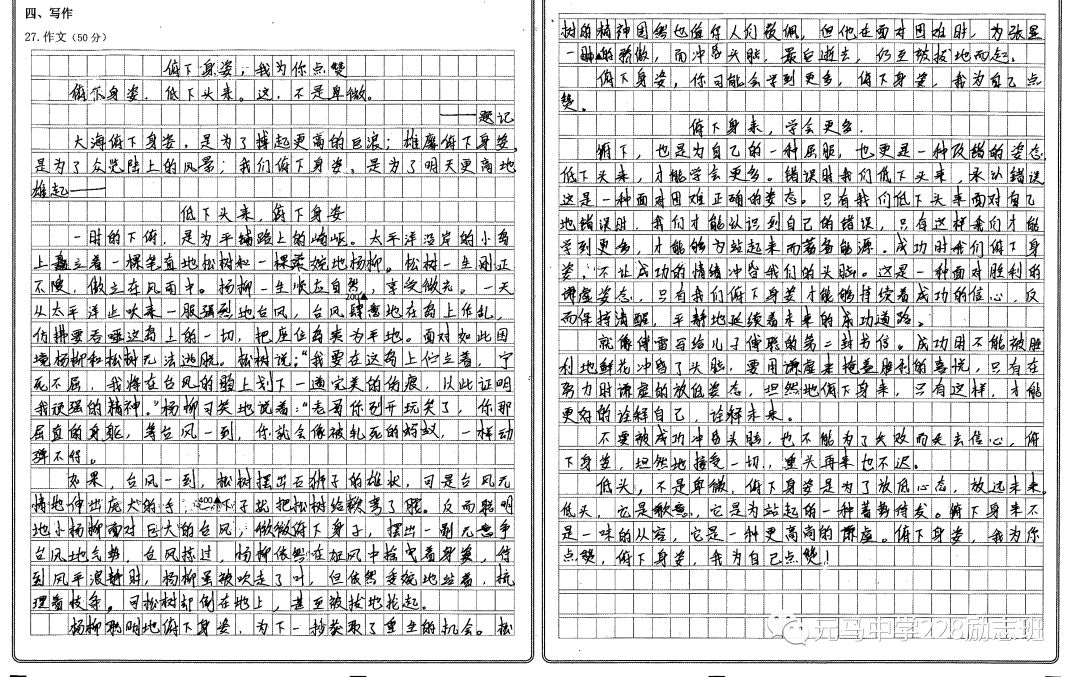 四、写作
27.作文（50分）
俯下身姿，我为你点赞
俯下身姿，低下头来。这，不是卑微。
——题记
大海俯下身姿，是为了掉起更高的巨浪；雄鹰俯下身姿
是为了众览陆上的风景；我们俯下身姿，是为了明天更高地
雄起——
低下头来，俯下身姿
一时的下俯，是为平铺路上的崎岖。太平洋沿岸的小岛
上矗立着一棵笔直地松树和一棵柔婉地杨柳。松树一生刚正
不陵，傲立在风雨中。杨柳一生顺应自然，享受微光。一天
200▲
从太平洋上吹来一股强烈地台风，台风肆意地在岛上作乱，
仿拂要吞哑这岛上的一切，把座位岛类为平地。面对如此困
境杨柳和松树无法逃脱。松树说："我要在这岛上伫立着，宁
死不屈，我将在台风的脸上划下一道完美的伤痕，以此证明
我顽强的精神。"杨柳可笑地说着："老哥你别开玩笑了，你那
屈直的身躯，等台风一到，你就会像被轧死的蚂蚁，一样动
弹不得。
如果，台风一到，松树摆出石狮子的雄状，可是台风无
情地伸出庞大的手，一下子就把松树给粮害了腰。反而聪明
400▲
地小杨柳面对巨大的台风，微微俯下身子，摆出一副无意争
台风地气势，台风掠过，杨柳依然在旋风中摇曳着身姿，待
到风平浪静时，杨柳虽被吹走了叶，但依然委婉地站着，梳
理着枝条。可松树却倒在地上，甚至被拔地抡起。
杨柳聪明地俯下身姿，为下一秒获取了重生的机会。松
树的精神固然也值得人们敬佩，但他在面对困难时，为张显
一时的骄傲，而冲昏头脑，最后逝去，仍至被拔地而起。
俯下身姿，你可能会学到更多，俯下身姿，我为自己点
赞。
俯下身来，学会更多.
俯下，也是为自己的一种屈服，也更是一种改错的姿态
低下头来，才能学会更多。错误时我们低下头来，承认错误
这是一种面对困难正确的姿态。只有我们低下头来面对自己
地错误时，我们才能认识到自己的错误，只有这样我们才能
学到更多，才能够为站起来而蓄备能源。成功时我们俯下身
姿，不让成功的情绪冲昏我们的头脑。这是一种面对胜利的
谦虚姿态，只有我们俯下身姿才能够持续着成功的信心，反
而保持清醒，平静地延续着未来的成功道路。
就像傅雷写给儿子傅聪的第二封书信。成功用不能被胜
利地鲜花冲昏了头脑，要用谦虚来掩盖胜利的喜悦，只有在
努力时谦虚的放低姿态，坦然地俯下身来，只有这样，才能
更好的诠释自己，诠释未来。
不要被成功冲昏头脑，也不能为了失败而失去信心，俯
下身姿，坦然地接受一切，重头再来也不迟。
低头，不是卑微，俯下身姿是为了放低心态，放远未来。
低头，它是歉意，它是为站起的一种蓄势待发。俯下身来不
是一味的从容，它是一种更高尚的谦虚。俯下身姿，我为你
点赞，俯下身姿，我为自己点赞！
元马中学228励志班